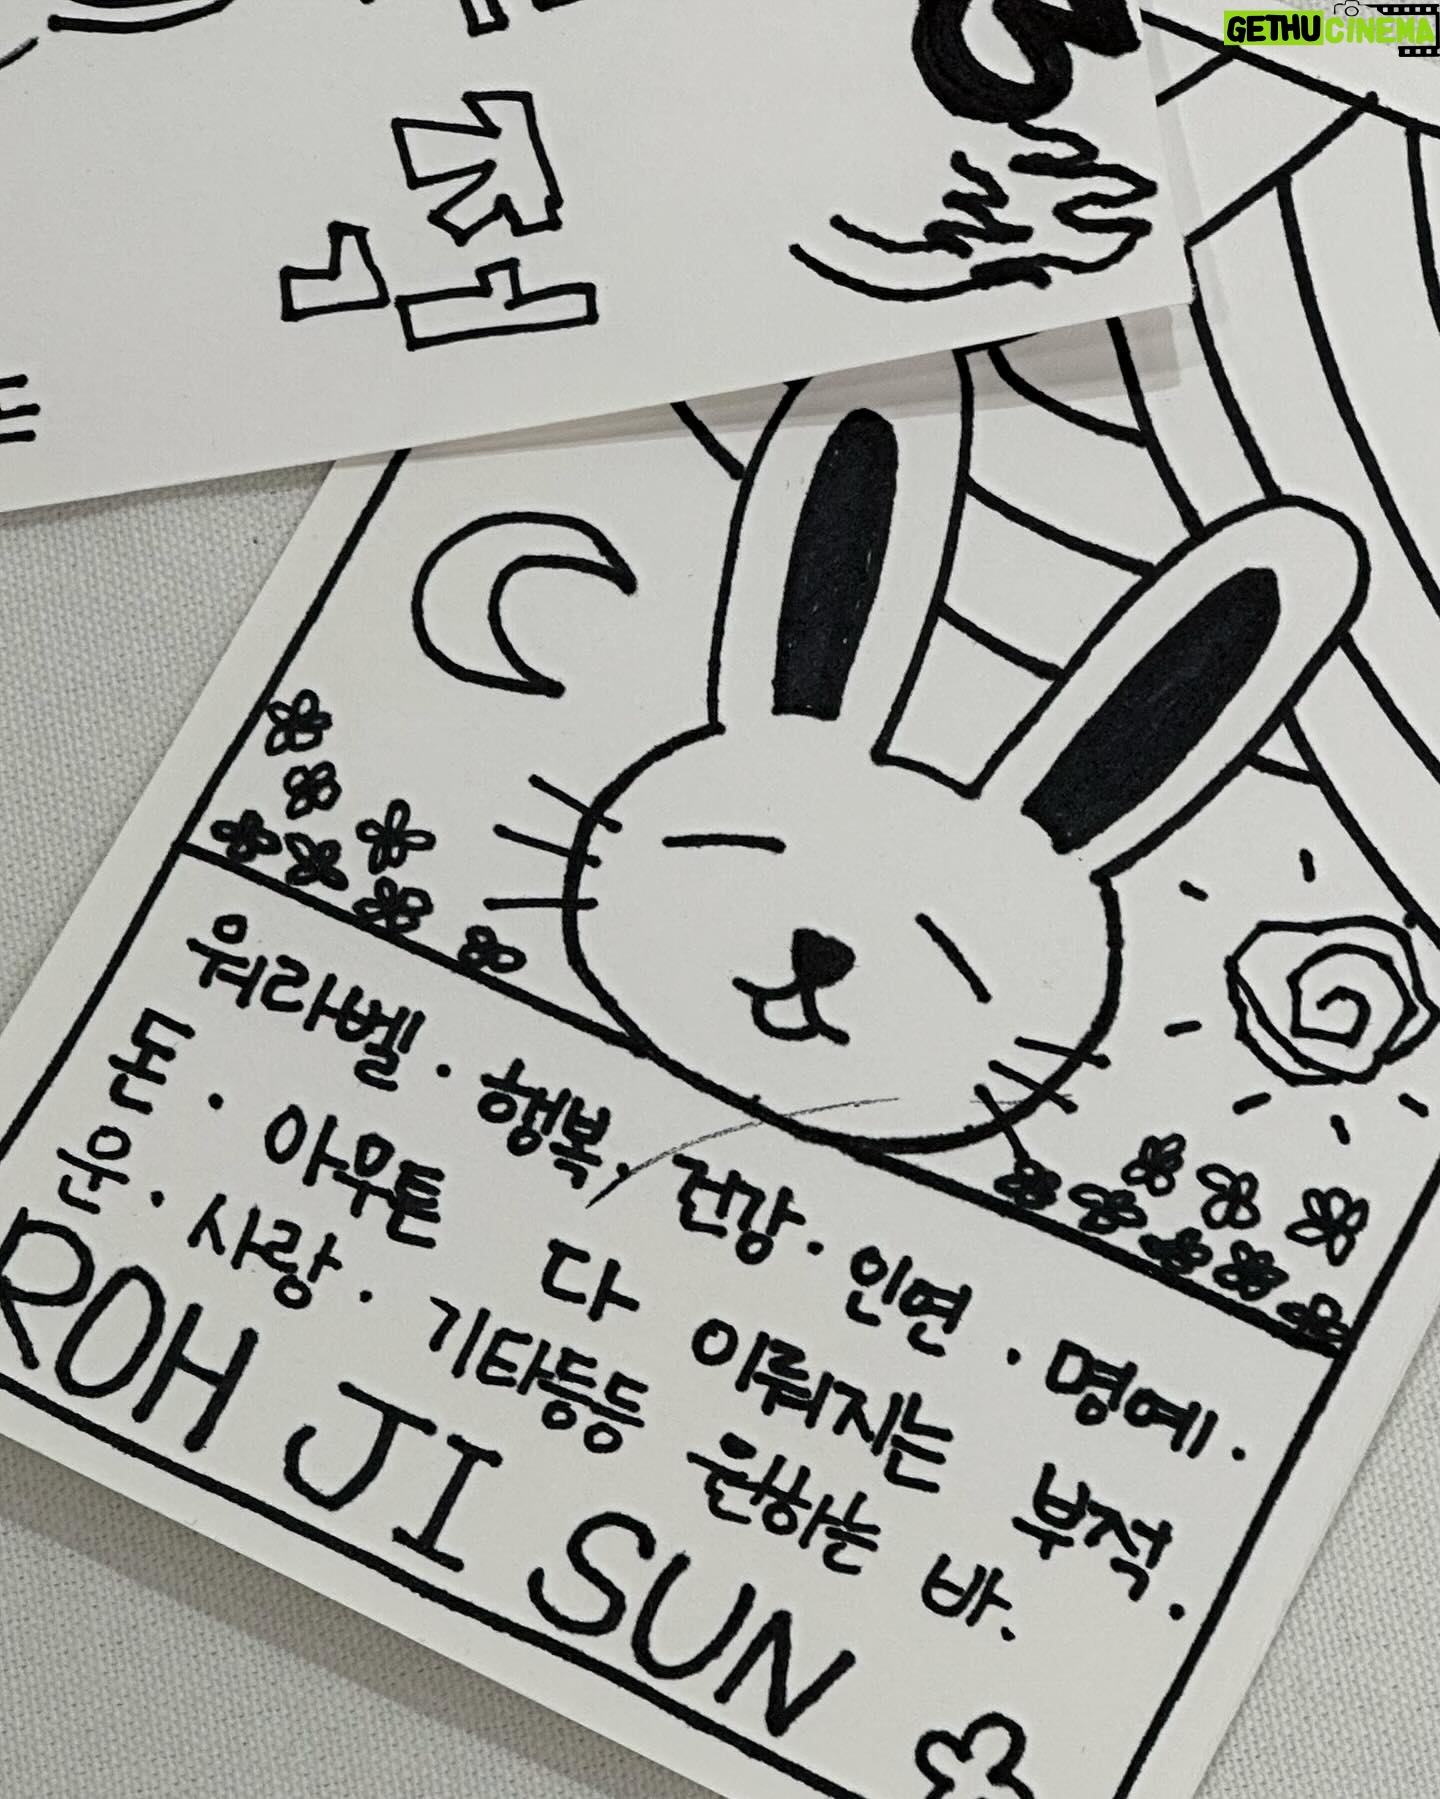 GETHUCINEMA
워라벨 · 행복 · 건강 · 인연 · 명예 ·
돈 · 아무튼 다 이뤄지는 부적 .
운 · 사랑 · 기타등등 원하는 바.
ROH JI SUN